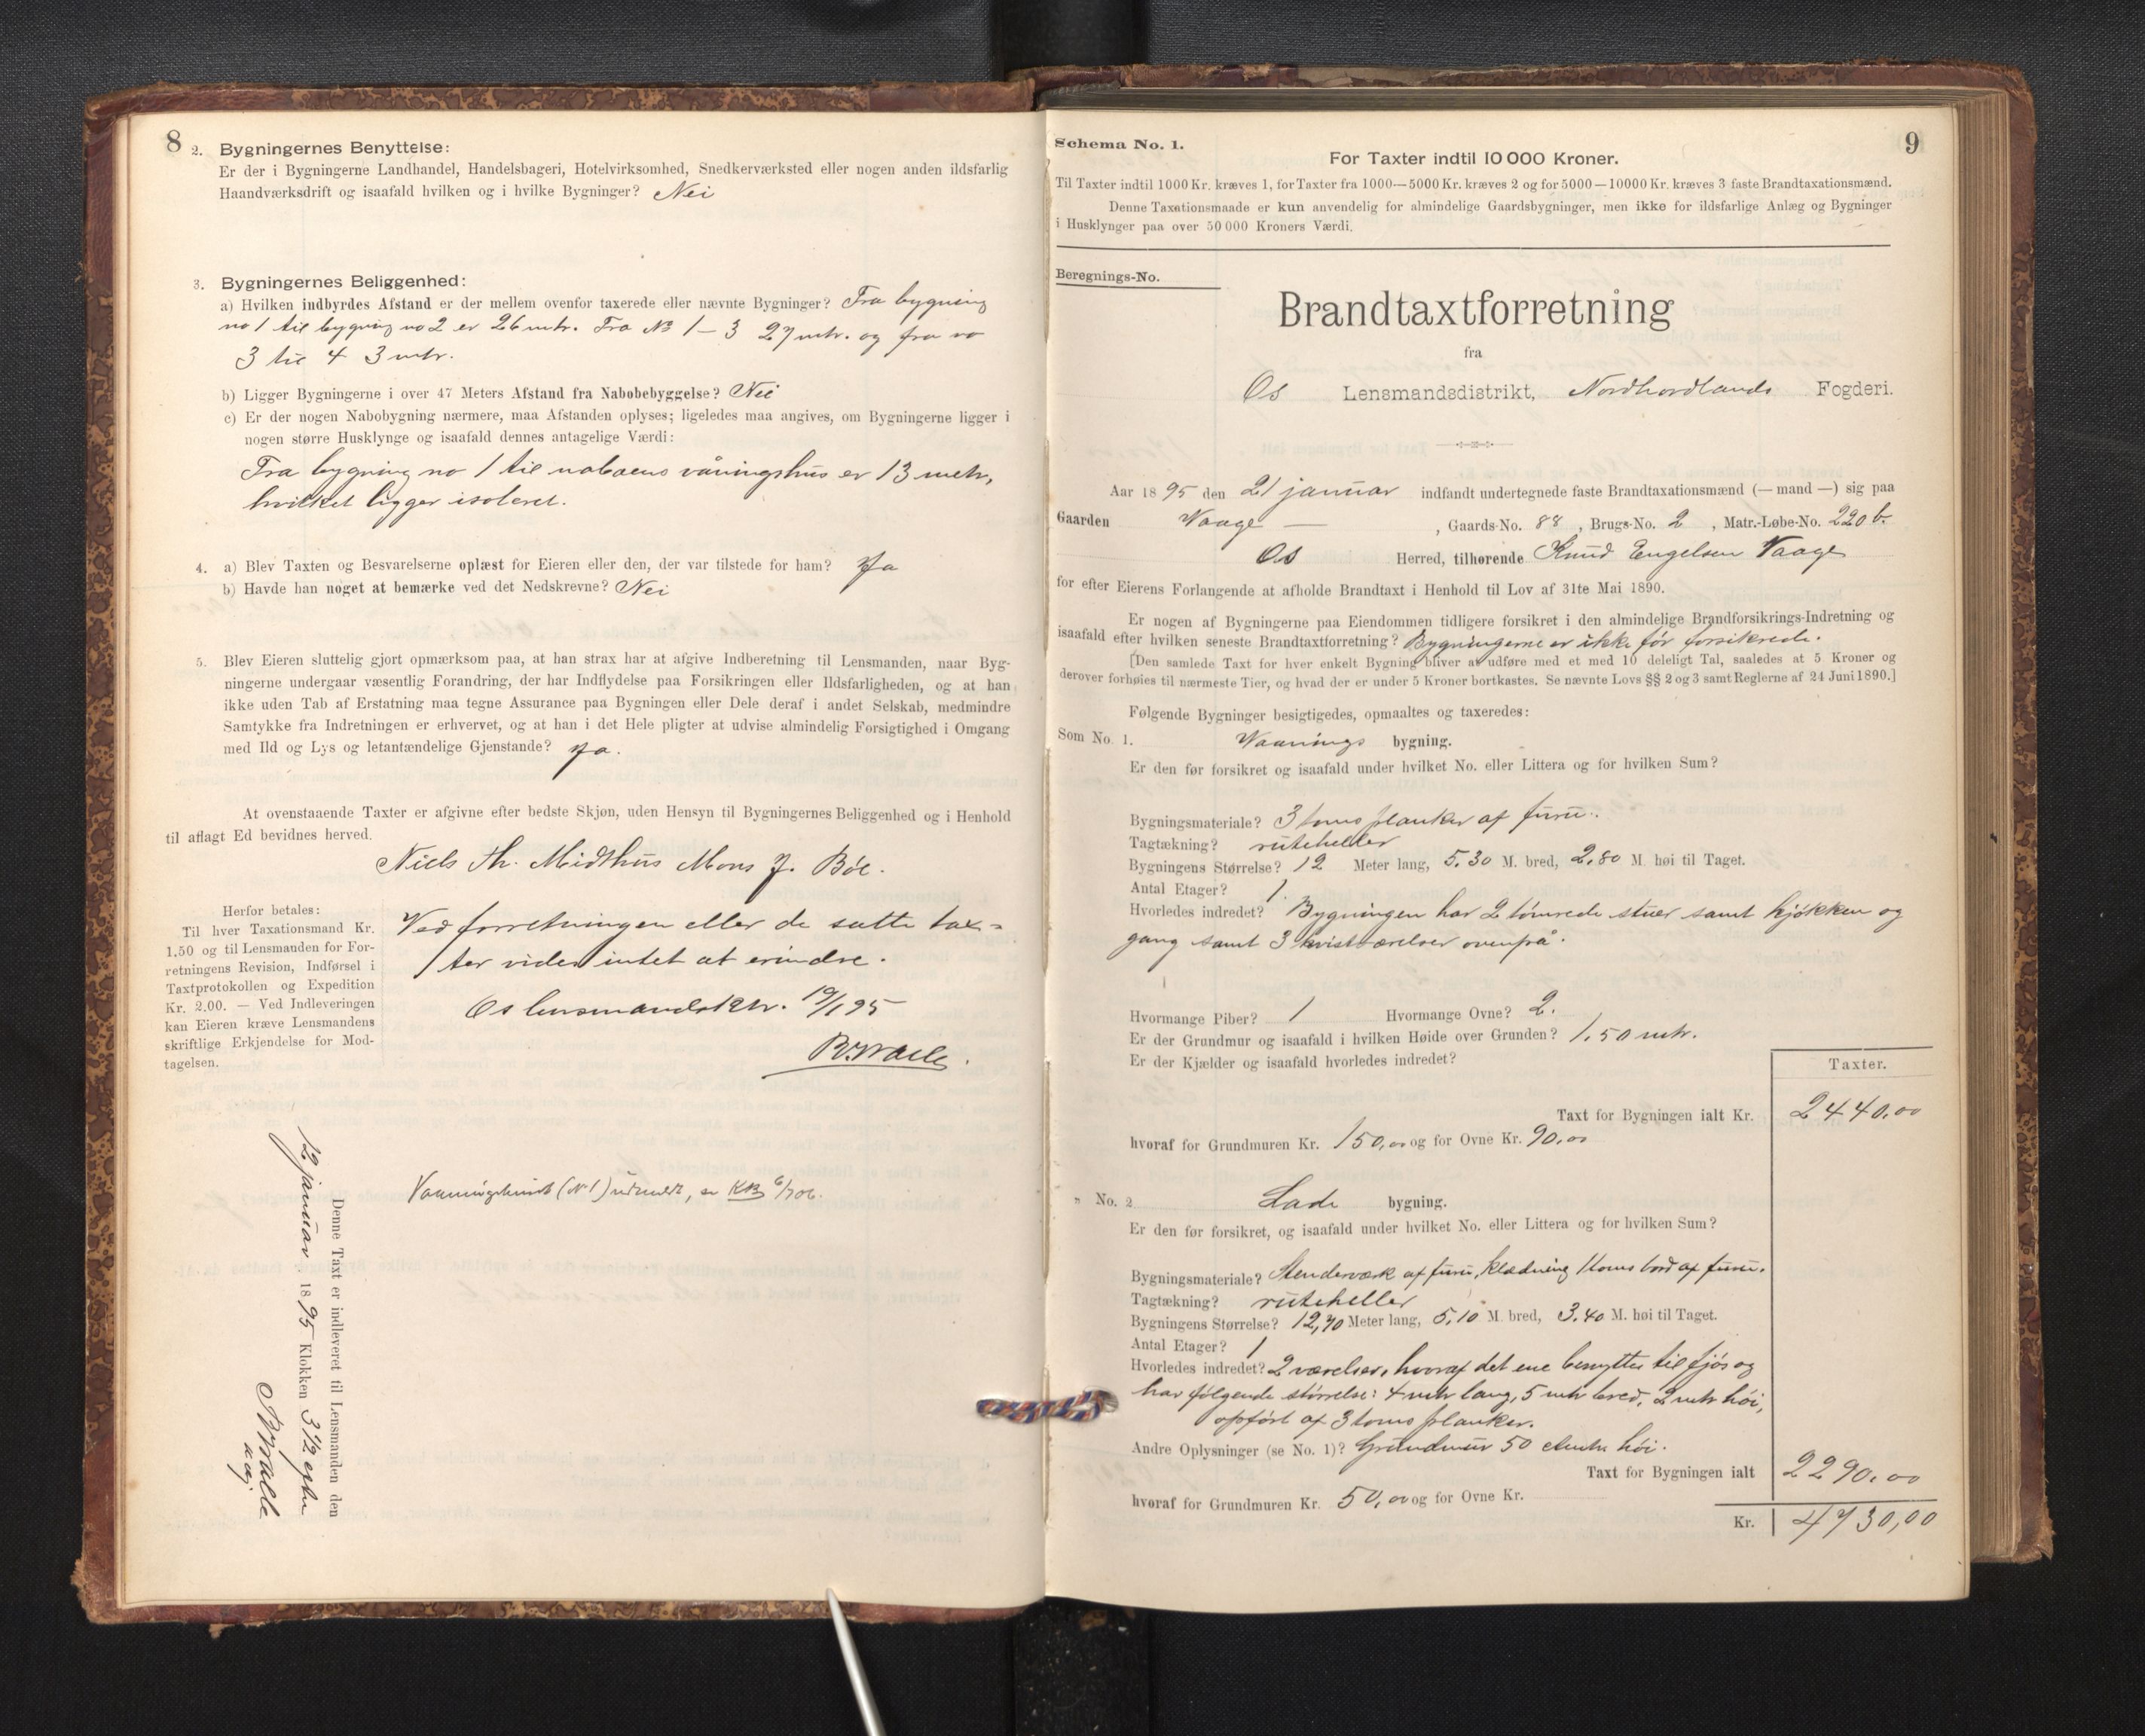 8
2. Bygningernes Benyttelse:
Er der i Bygningerne Landhandel, Handelsbageri, Hotelvirksomhed, Snedkerværksted eller nogen anden ildsfarlig
Haandværksdrift og isaafald hvilken og i hvilke Bygninger? Nei
3. Bygningernes Beliggenhed:
a) Hvilken indbyrdes Afstand er der mellem ovenfor taxerede eller nævnte Bygninger? Fra bygning
no 1 til bygning no 2 er 26 mtr. Fra No 1 – 3 27 mtr. og fra no
3 til 4 3 mtr.
b) Ligger Bygningerne i over 47 Meters Afstand fra Nabobebyggelse? Nei
c) Er der nogen Nabobygning nærmere, maa Afstanden oplyses; ligeledes maa angives, om Bygningerne ligger i
nogen større Husklynge og isaafald dennes antagelige Værdi:
Fra bygning no 1 til naboens våningshus er 13 metr,
hvilket ligger isoleret.
4. a) Blev Taxten og Besvarelserne oplæst for Eieren eller den, der var tilstede for ham? Ja
b) Havde han noget at bemærke ved det Nedskrevne? Nei
5. Blev Eieren sluttelig gjort opmærksom paa, at han strax har at afgive Indberetning til Lensmanden, naar Byg-
ningerne undergaar væsentlig Forandring, der har Indflydelse paa Forsikringen eller Ildsfarligheden, og at han
ikke uden Tab af Erstatning maa tegne Assurance paa Bygningen eller Dele deraf i andet Selskab, medmindre
Samtykke fra Indretningen er erhvervet, og at han i det Hele pligter at udvise almindelig Forsigtighed i Omgang
med Ild og Lys og letantændelige Gjenstande? Ja.
At ovenstaaende Taxter er afgivne efter bedste Skjøn, uden Hensyn til Bygningernes Beliggenhed og i Henhold
til aflagt Ed bevidnes herved.
Niels Th. Midthus Mons J. Böe.
Herfor betales:
Til hver Taxationsmand Kr.
1.50 og til Lensmanden for For-
retningens Revision, Indførsel i
Taxtprotokollen og Expedition
Kr. 2.00. — Ved Indleveringen
kan Eieren kræve Lensmandens
skriftlige Erkjendelse for Mod-
tagelsen.
Ved forretningen eller de satte tax-
ter vides intet at erindre.
Os lensmandsktr. 19/1 95
Vaaningshuset (No 1) udmeldt, se KB 6/706.
Denne Taxt er indleveret til Lensmanden den
12 januar 1895 Klokken 3 1/2 eftm
9
Schema No. 1.
For Taxter indtil 10 000 Kroner.
Til Taxter indtil 1000 Kr. kræves 1, for Taxter fra 1000—5000 Kr. kræves 2 og for 5000—10000 Kr. kræves 3 faste Brandtaxationsmænd.
Denne Taxationsmaade er kun anvendelig for almindelige Gaardsbygninger, men ikke for ildsfarlige Anlæg og Bygninger
i Husklynger paa over 50 000 Kroners Værdi.
Beregnings-No.
Brandtaxtforretning
fra
Os Lensmandsdistrikt, Nordhordlands Fogderi.
Aar 1895 den 21 januar indfandt undertegnede faste Brandtaxationsmænd (— mand —) sig paa
Gaarden Vaage — , Gaards-No. 88 , Brugs-No. 2 , Matr.-Løbe-No. 220 b.
Os Herred, tilhørende Knud Engelsen Vaage
for efter Eierens Forlangende at afholde Brandtaxt i Henhold til Lov af 31te Mai 1890.
Er nogen af Bygningerne paa Eiendommen tidligere forsikret i den almindelige Brandforsikrings-Indretning og
isaafald efter hvilken seneste Brandtaxtforretning? Bygningerne er ikke för forsikrede.
[Den samlede Taxt for hver enkelt Bygning bliver at udføre med et med 10 deleligt Tal, saaledes at 5 Kroner og
derover forhøies til nærmeste Tier, og hvad der er under 5 Kroner bortkastes. Se nævnte Lovs §§ 2 og 3 samt Reglerne af 24 Juni 1890.]
Følgende Bygninger besigtigedes, opmaaltes og taxeredes:
Som No. 1. Vaanings bygning.
Er den før forsikret og isaafald under hvilket No. eller Littera og for hvilken Sum?
Bygningsmateriale? 3 toms planker af furu.
Tagtækning? rüteheller
Bygningens Størrelse? 12 Meter lang, 5,30 M. bred, 2,80 M. høi til Taget.
Antal Etager? 1.
Hvorledes indredet? Bygningen har 2 tömrede stuer samt kjökken og
gang samt 3 kvistværelser ovenpå.
Hvormange Piber? 1 Hvormange Ovne? 2.
Er der Grundmur og isaafald i hvilken Høide over Grunden? 1,50 mtr.
Er der Kjælder og isaafald hvorledes indredet?
Taxter.
Taxt for Bygningen ialt Kr. 2440,00
hvoraf for Grundmuren Kr. 150,00 og for Ovne Kr. 90,00
" No. 2 Lade bygning.
Er den før forsikret, og isaafald under hvilket No. eller Littera og for hvilken Sum?
Bygningsmateriale? Stenderværk af furu, klædning 1 toms bord af furu.
Tagtækning? rüteheller
Bygningens Størrelse? 12,70 Meter lang, 5,10 M. bred, 3,40 M. høi til Taget.
Antal Etager? 1
Hvorledes indredet? 2 værelser, hvoraf det ene benyttes til fjös og
har fölgende störrelse: 4 mtr lang, 5 mtr bred, 2 mtr höi,
opfört af 3 toms planker.
Andre Oplysninger (se No. 1)? Grundmur 50 ctmtr. höi.
Taxt for Bygningen ialt 2290,00
hvoraf for Grundmuren Kr. 50,00 og for Ovne Kr.
Kr. 4730,00